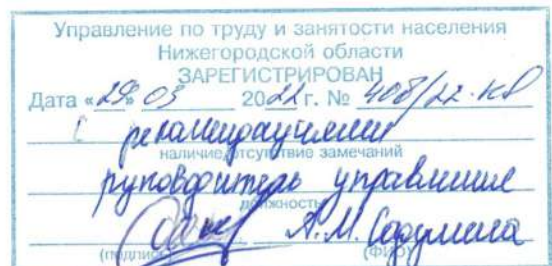 Управление по труду и занятости населения
Нижегородской области
ЗАРЕГИСТРИРОВАН
Дата «29» 03 2022 г. № 408/22-КД
с рекомендациями
наличие/отсутствие замечаний
руководитель управления
должность
А.М.
(подпись) (ФИО)